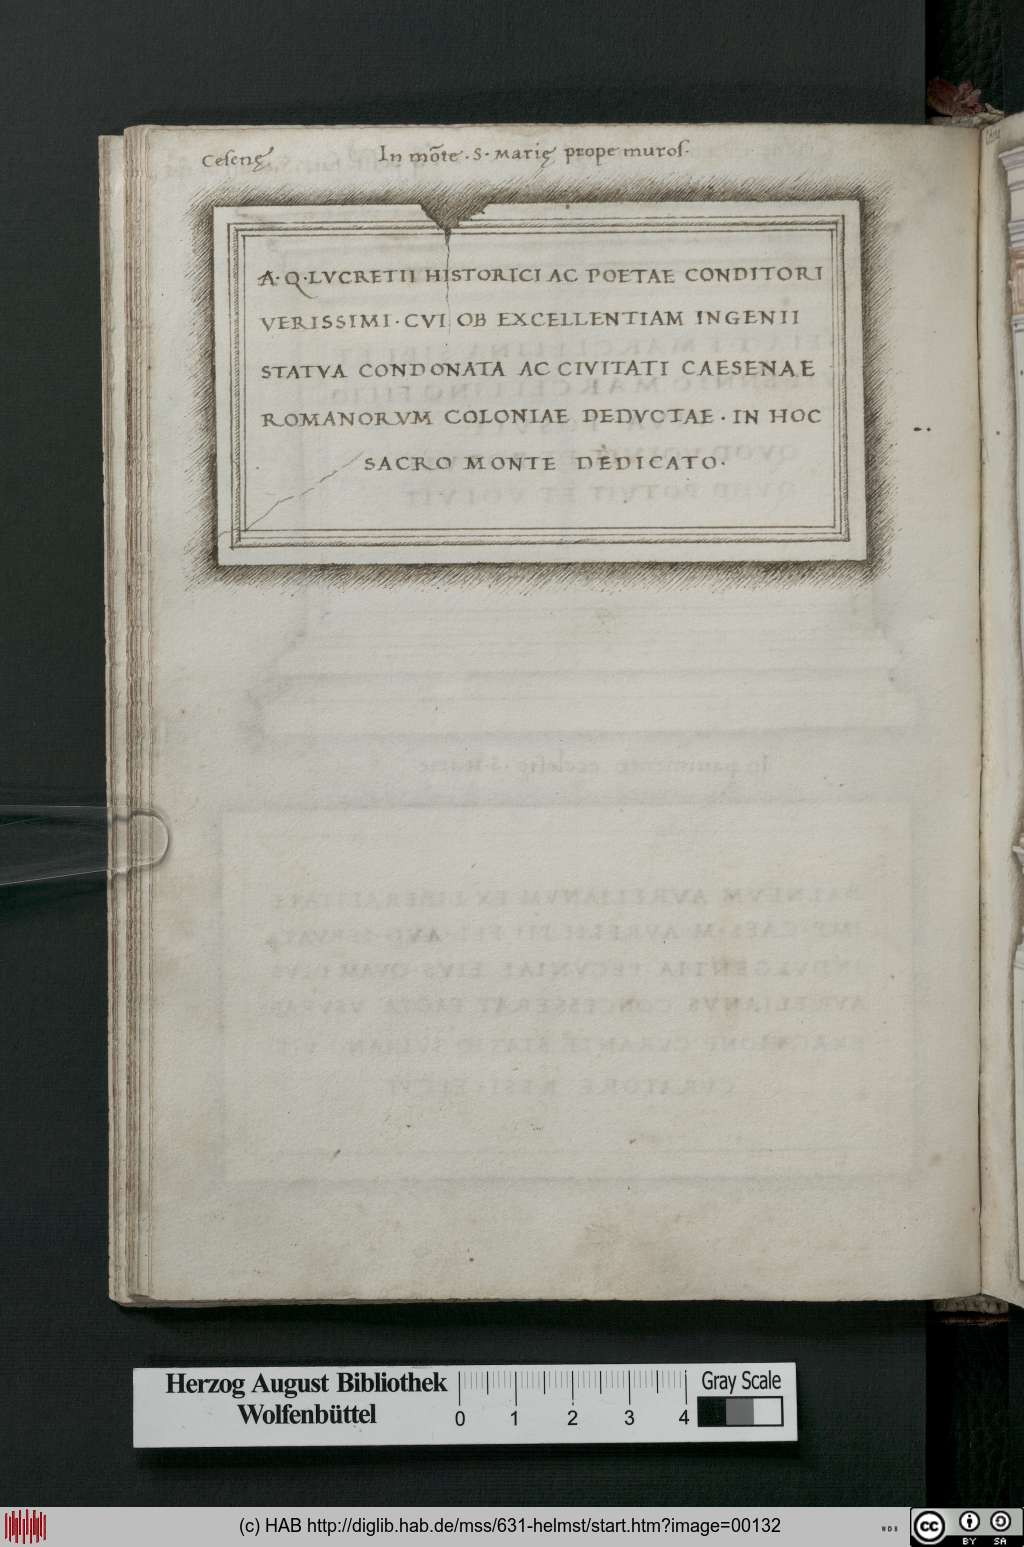 Ceſenę In mōte · S · Marię prope muroſ ·
A · Q · LVCRETII HISTORICI AC POETAE CONDITORI
VERISSIMI · CVI OB EXCELLENTIAM INGENII
STATVA CONDONATA AC CIVITATI CAESENAE
ROMANORVM COLONIAE DEDVCTAE · IN HOC
SACRO MONTE DEDICATO ·
Herzog August Bibliothek
Wolfenbüttel
0 1 2 3 4
Gray Scale
(c) HAB http://diglib.hab.de/mss/631-helmst/start.htm?image=00132
WDB
cc BY SA